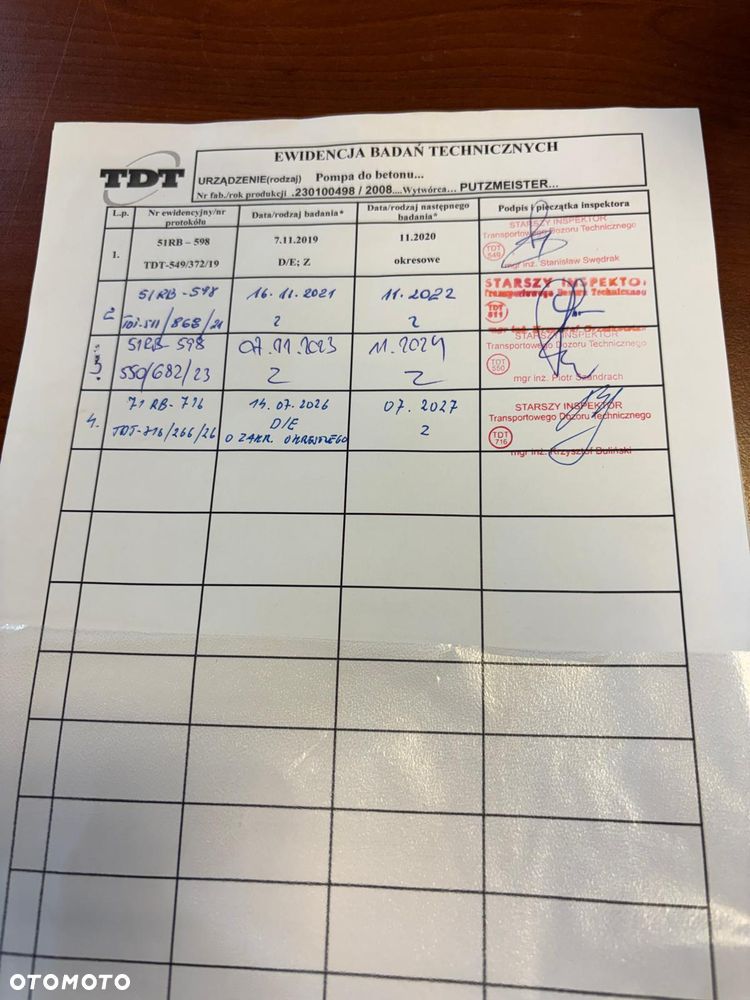 EWIDENCJA BADAŃ TECHNICZNYCH
TDT
URZĄDZENIE(rodzaj) Pompa do betonu...
Nr fab./rok produkcji .230100498 / 2008....Wytwórca... PUTZMEISTER...
L.p. Nr ewidencyjny/nr protokółu Data/rodzaj badania* Data/rodzaj następnego badania* Podpis i pieczątka inspektora
1. 51RB – 598 7.11.2019 11.2020 STARSZY INSPEKTOR
Transportowego Dozoru Technicznego
TDT-549/372/19 D/E; Z okresowe TDT 549
mgr inż. Stanisław Swędrak
2 51RB - 598 16.11.2021 11.2022 STARSZY INSPEKTO
Transportowego Dozoru Technicznego
TDT-511/868/21 2 2 TDT 511
mgr inż.
3. 51RB- 598 07.11.2023 11.2024 STARSZY INSPEKTOR
Transportowego Dozoru Technicznego
550/682/23 Z Z TDT 550
mgr inż. Piotr Szandrach
4. 71 RB - 716 14.07.2026 07.2027 STARSZY INSPEKTOR
Transportowego Dozoru Technicznego
TDT-716/266/26 D/E 2 TDT 716
O ZAKR. OKRESOWEGO
mgr inż. Krzysztof Buliński
OTOMOTO